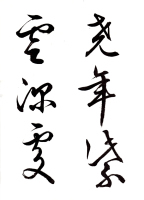 堯年紫
雲深處